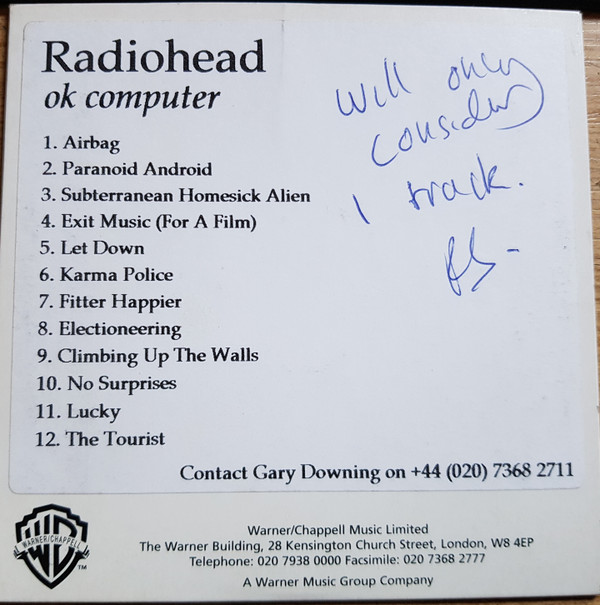 Radiohead
ok computer
1. Airbag
2. Paranoid Android
3. Subterranean Homesick Alien
4. Exit Music (For A Film)
5. Let Down
6. Karma Police
7. Fitter Happier
8. Electioneering
9. Climbing Up The Walls
10. No Surprises
11. Lucky
12. The Tourist
will only
consider
1 track.
Contact Gary Downing on +44 (020) 7368 2711
WARNER/CHAPPELL
TM
Warner/Chappell Music Limited
The Warner Building, 28 Kensington Church Street, London, W8 4EP
Telephone: 020 7938 0000 Facsimile: 020 7368 2777
A Warner Music Group Company